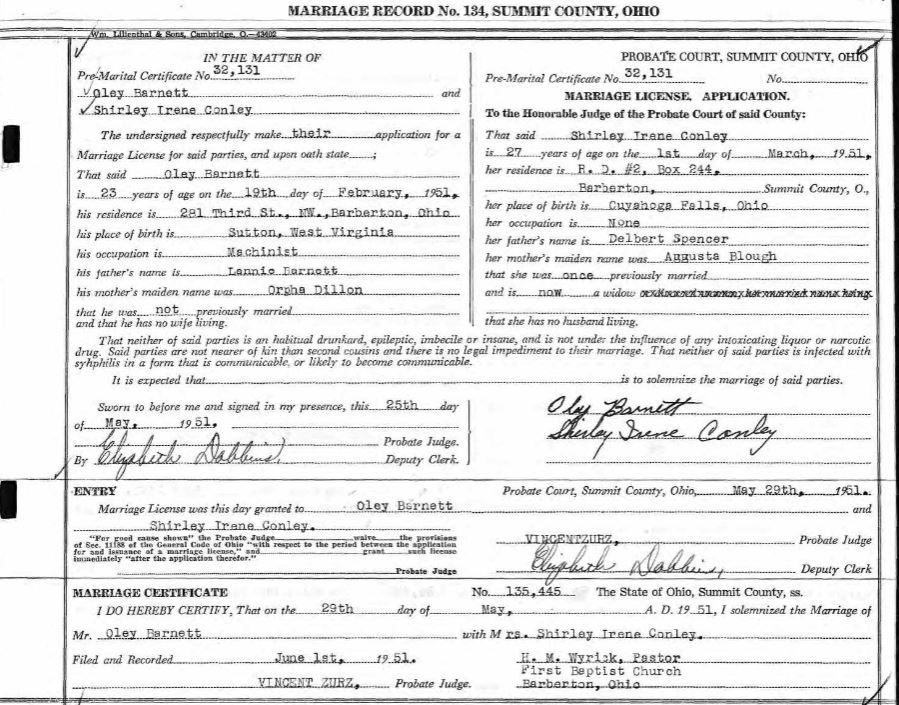 MARRIAGE RECORD No. 134, SUMMIT COUNTY, OHIO
Wm. Lilienthal & Sons, Cambridge, O.—43602
IN THE MATTER OF
Pre-Marital Certificate No. 32,131
Oley Barnett and
Shirley Irene Conley
The undersigned respectfully make their application for a
Marriage License for said parties, and upon oath state ;
That said Oley Barnett
is 23 years of age on the 19th day of February, 1951,
his residence is 281 Third St., NW., Barberton, Ohio
his place of birth is Sutton, West Virginia
his occupation is Machinist
his father's name is Lannie Barnett
his mother's maiden name was Orpha Dillon
that he was not previously married
and that he has no wife living.
PROBATE COURT, SUMMIT COUNTY, OHIO
Pre-Marital Certificate No. 32,131 No.
MARRIAGE LICENSE, APPLICATION.
To the Honorable Judge of the Probate Court of said County:
That said Shirley Irene Conley
is 27 years of age on the 1st day of March, 1951,
her residence is R. D. #2, Box 244,
Barberton, Summit County, O.,
her place of birth is Cuyahoga Falls, Ohio
her occupation is None
her father's name is Delbert Spencer
her mother's maiden name was Augusta Blough
that she was once previously married
and is now a widow
that she has no husband living.
That neither of said parties is an habitual drunkard, epileptic, imbecile or insane, and is not under the influence of any intoxicating liquor or narcotic
drug. Said parties are not nearer of kin than second cousins and there is no legal impediment to their marriage. That neither of said parties is infected with
syhphilis in a form that is communicable, or likely to become communicable.
It is expected that is to solemnize the marriage of said parties.
Sworn to before me and signed in my presence, this 25th day
of May, 1951.
Probate Judge.
By Elizabeth Dobbins, Deputy Clerk.
Oley Barnett
Shirley Irene Conley
ENTRY
Probate Court, Summit County, Ohio, May 29th, 1951.
Marriage License was this day granted to Oley Barnett and
Shirley Irene Conley.
"For good cause shown" the Probate Judge waive the provisions
of Sec. 11188 of the General Code of Ohio "with respect to the period between the application
for and issuance of a marriage license," and grant such license
immediately "after the application therefor."
Probate Judge
VINCENTZURZ, Probate Judge
Elizabeth Dobbins, Deputy Clerk
MARRIAGE CERTIFICATE No. 135,445 The State of Ohio, Summit County, ss.
I DO HEREBY CERTIFY, That on the 29th day of May, A. D. 1951, I solemnized the Marriage of
Mr. Oley Barnett with Mrs. Shirley Irene Conley.
Filed and Recorded June 1st, 1951.
VINCENT ZURZ, Probate Judge.
H. M. Wyrick, Pastor
First Baptist Church
Barberton, Ohio